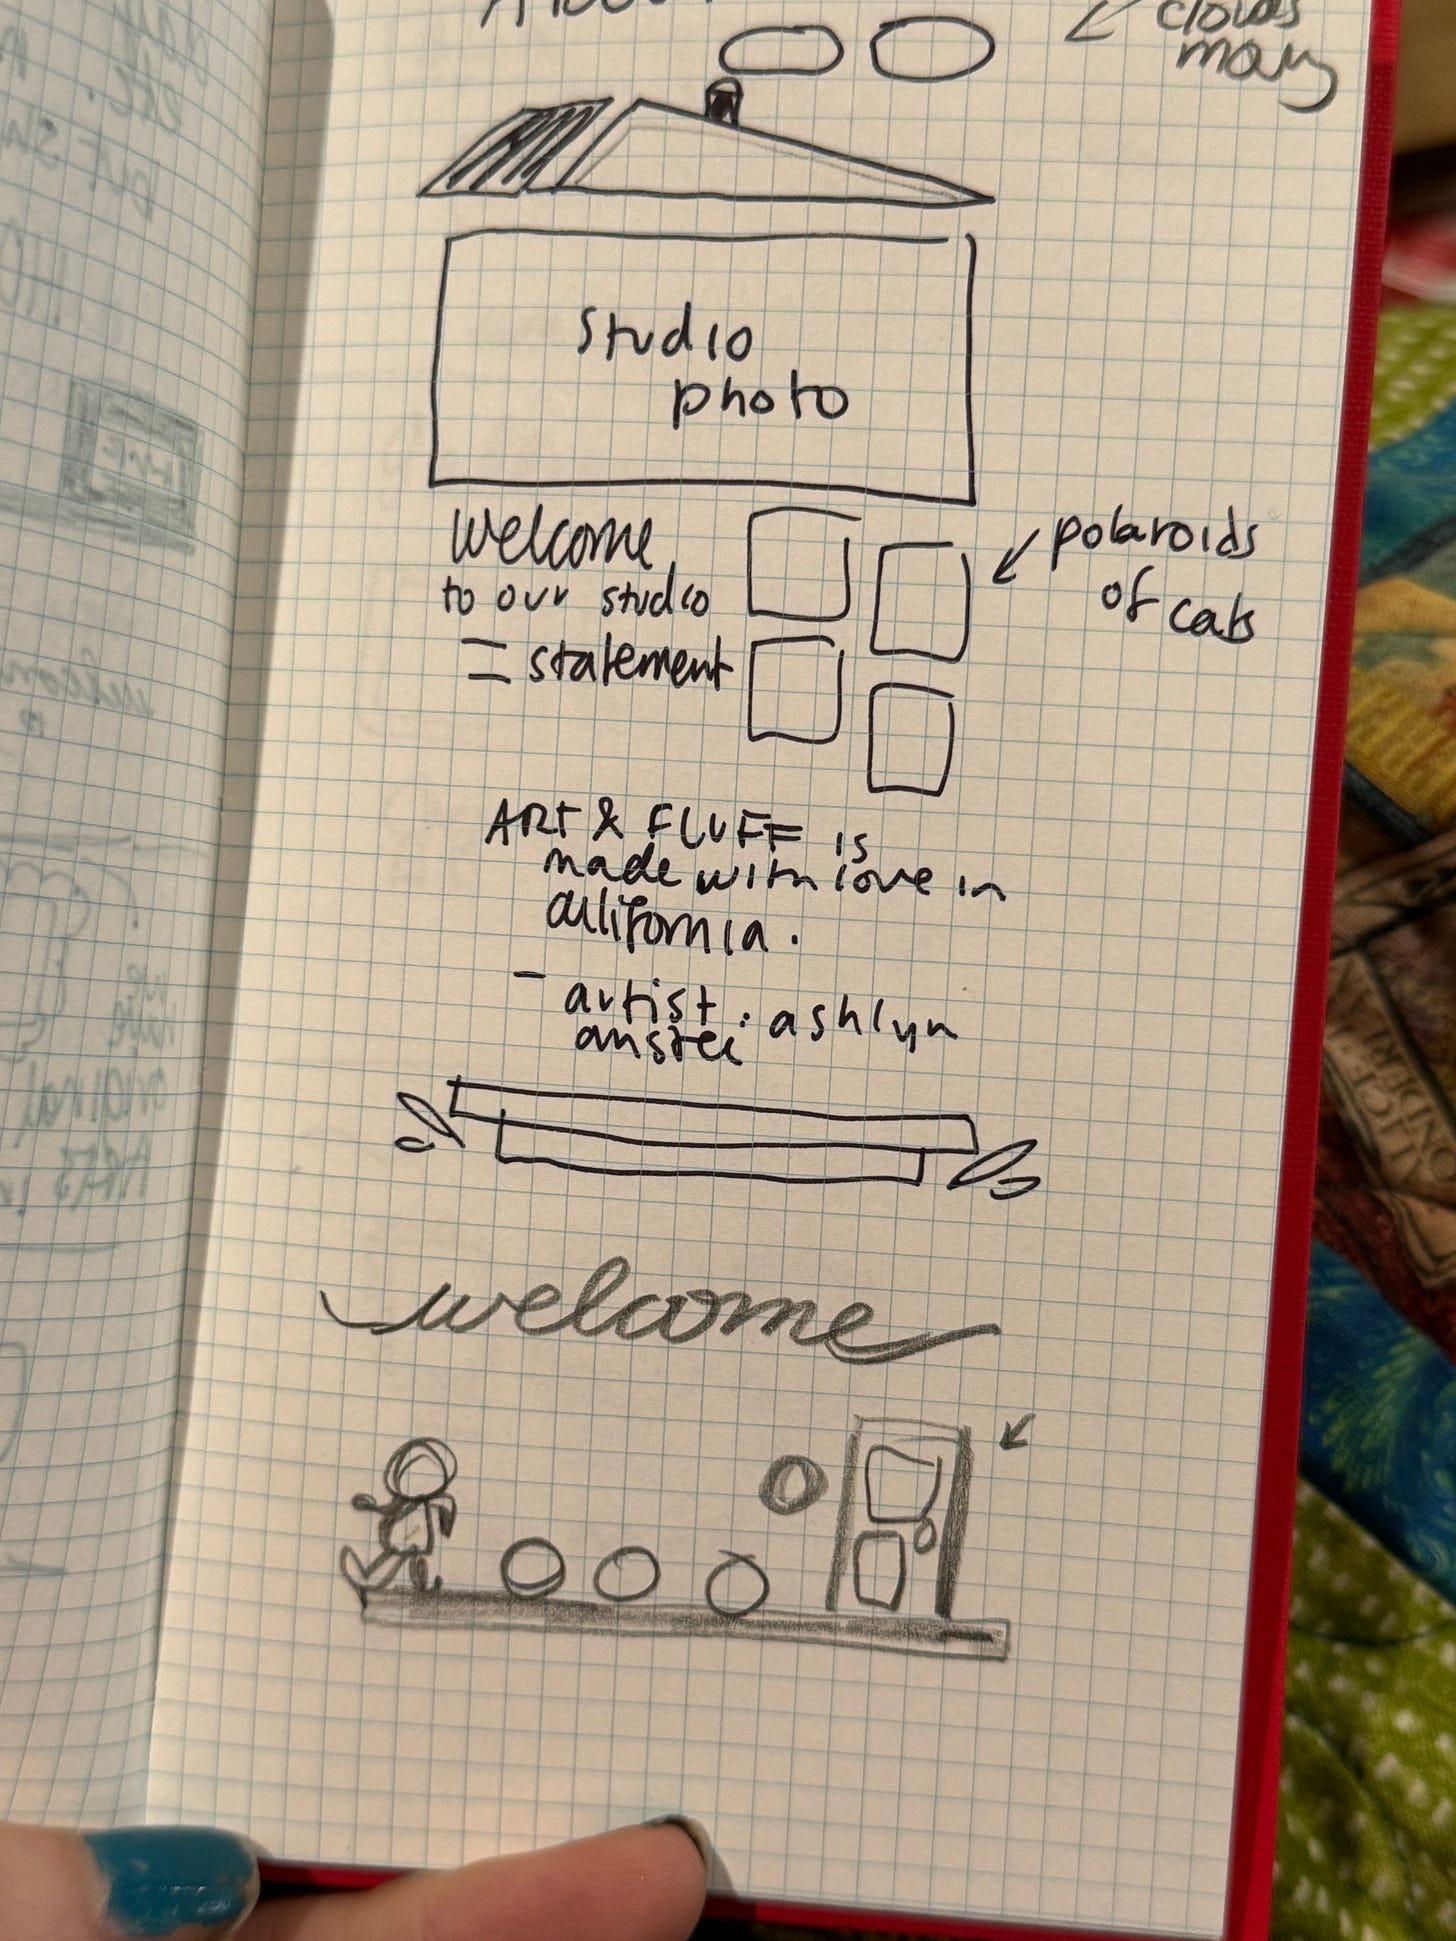 clouds
may
studio
photo
welcome
to our studio
= statement
polaroids
of cats
ART & FLUFF is
made with love in
california.
- artist: ashlyn
anstee
welcome